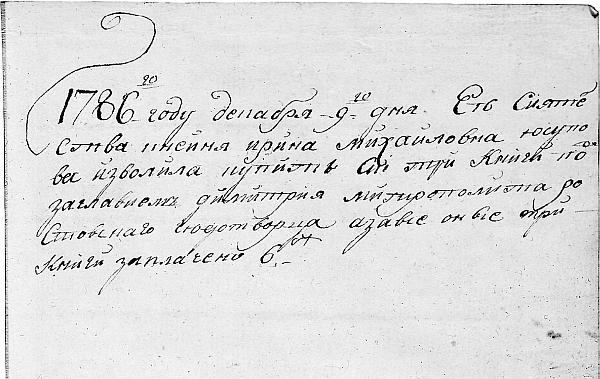 1786 го году декабря 9 го дня. Еѣ Сиятѣ
ства кнеиня ирина михайловна юсупо
ва изволила купить Сіи три Книги по
заглавиемъ димитрия митирополита ро
стовскаго чюдотворца азавсе оные три
Книги заплачено 6